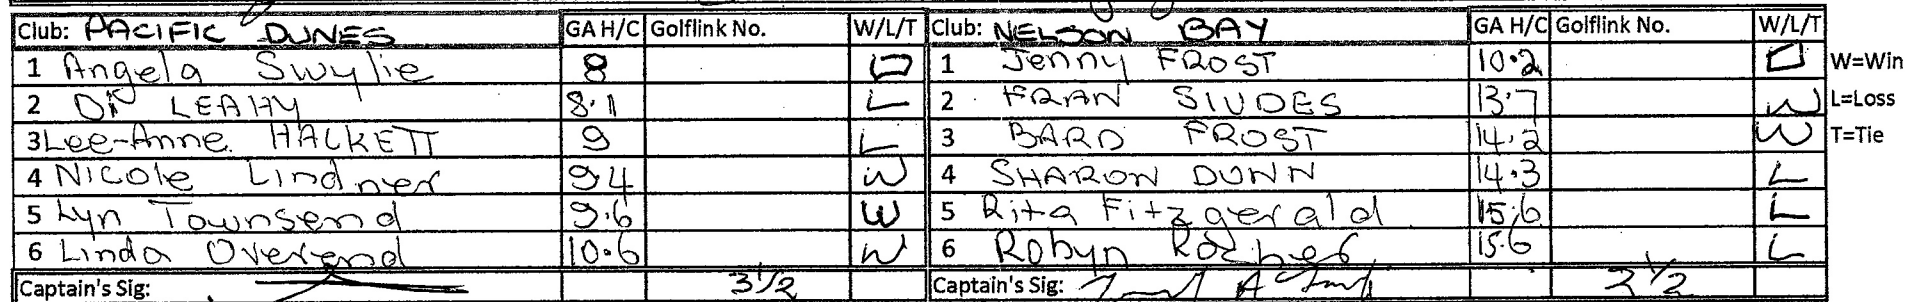 Club: PACIFIC DUNES GA H/C Golflink No. W/L/T Club: NELSON BAY GA H/C Golflink No. W/L/T
1 Angela Swylie 8 D 1 Jenny FROST 10.2 D W=Win
2 Di LEAHY 8.1 L 2 FRAN SIUDES 13.7 W L=Loss
3 Lee-Anne HACKETT 9 L 3 BARD FROST 14.2 W T=Tie
4 Nicole Lindner 9.4 W 4 SHARON DUNN 14.3 L
5 Lyn Townsend 9.6 W 5 Rita Fitzgerald 15.6 L
6 Linda Overend 10.6 W 6 Robyn 15.6 L
Captain's Sig: 3 1/2 Captain's Sig: 2 1/2